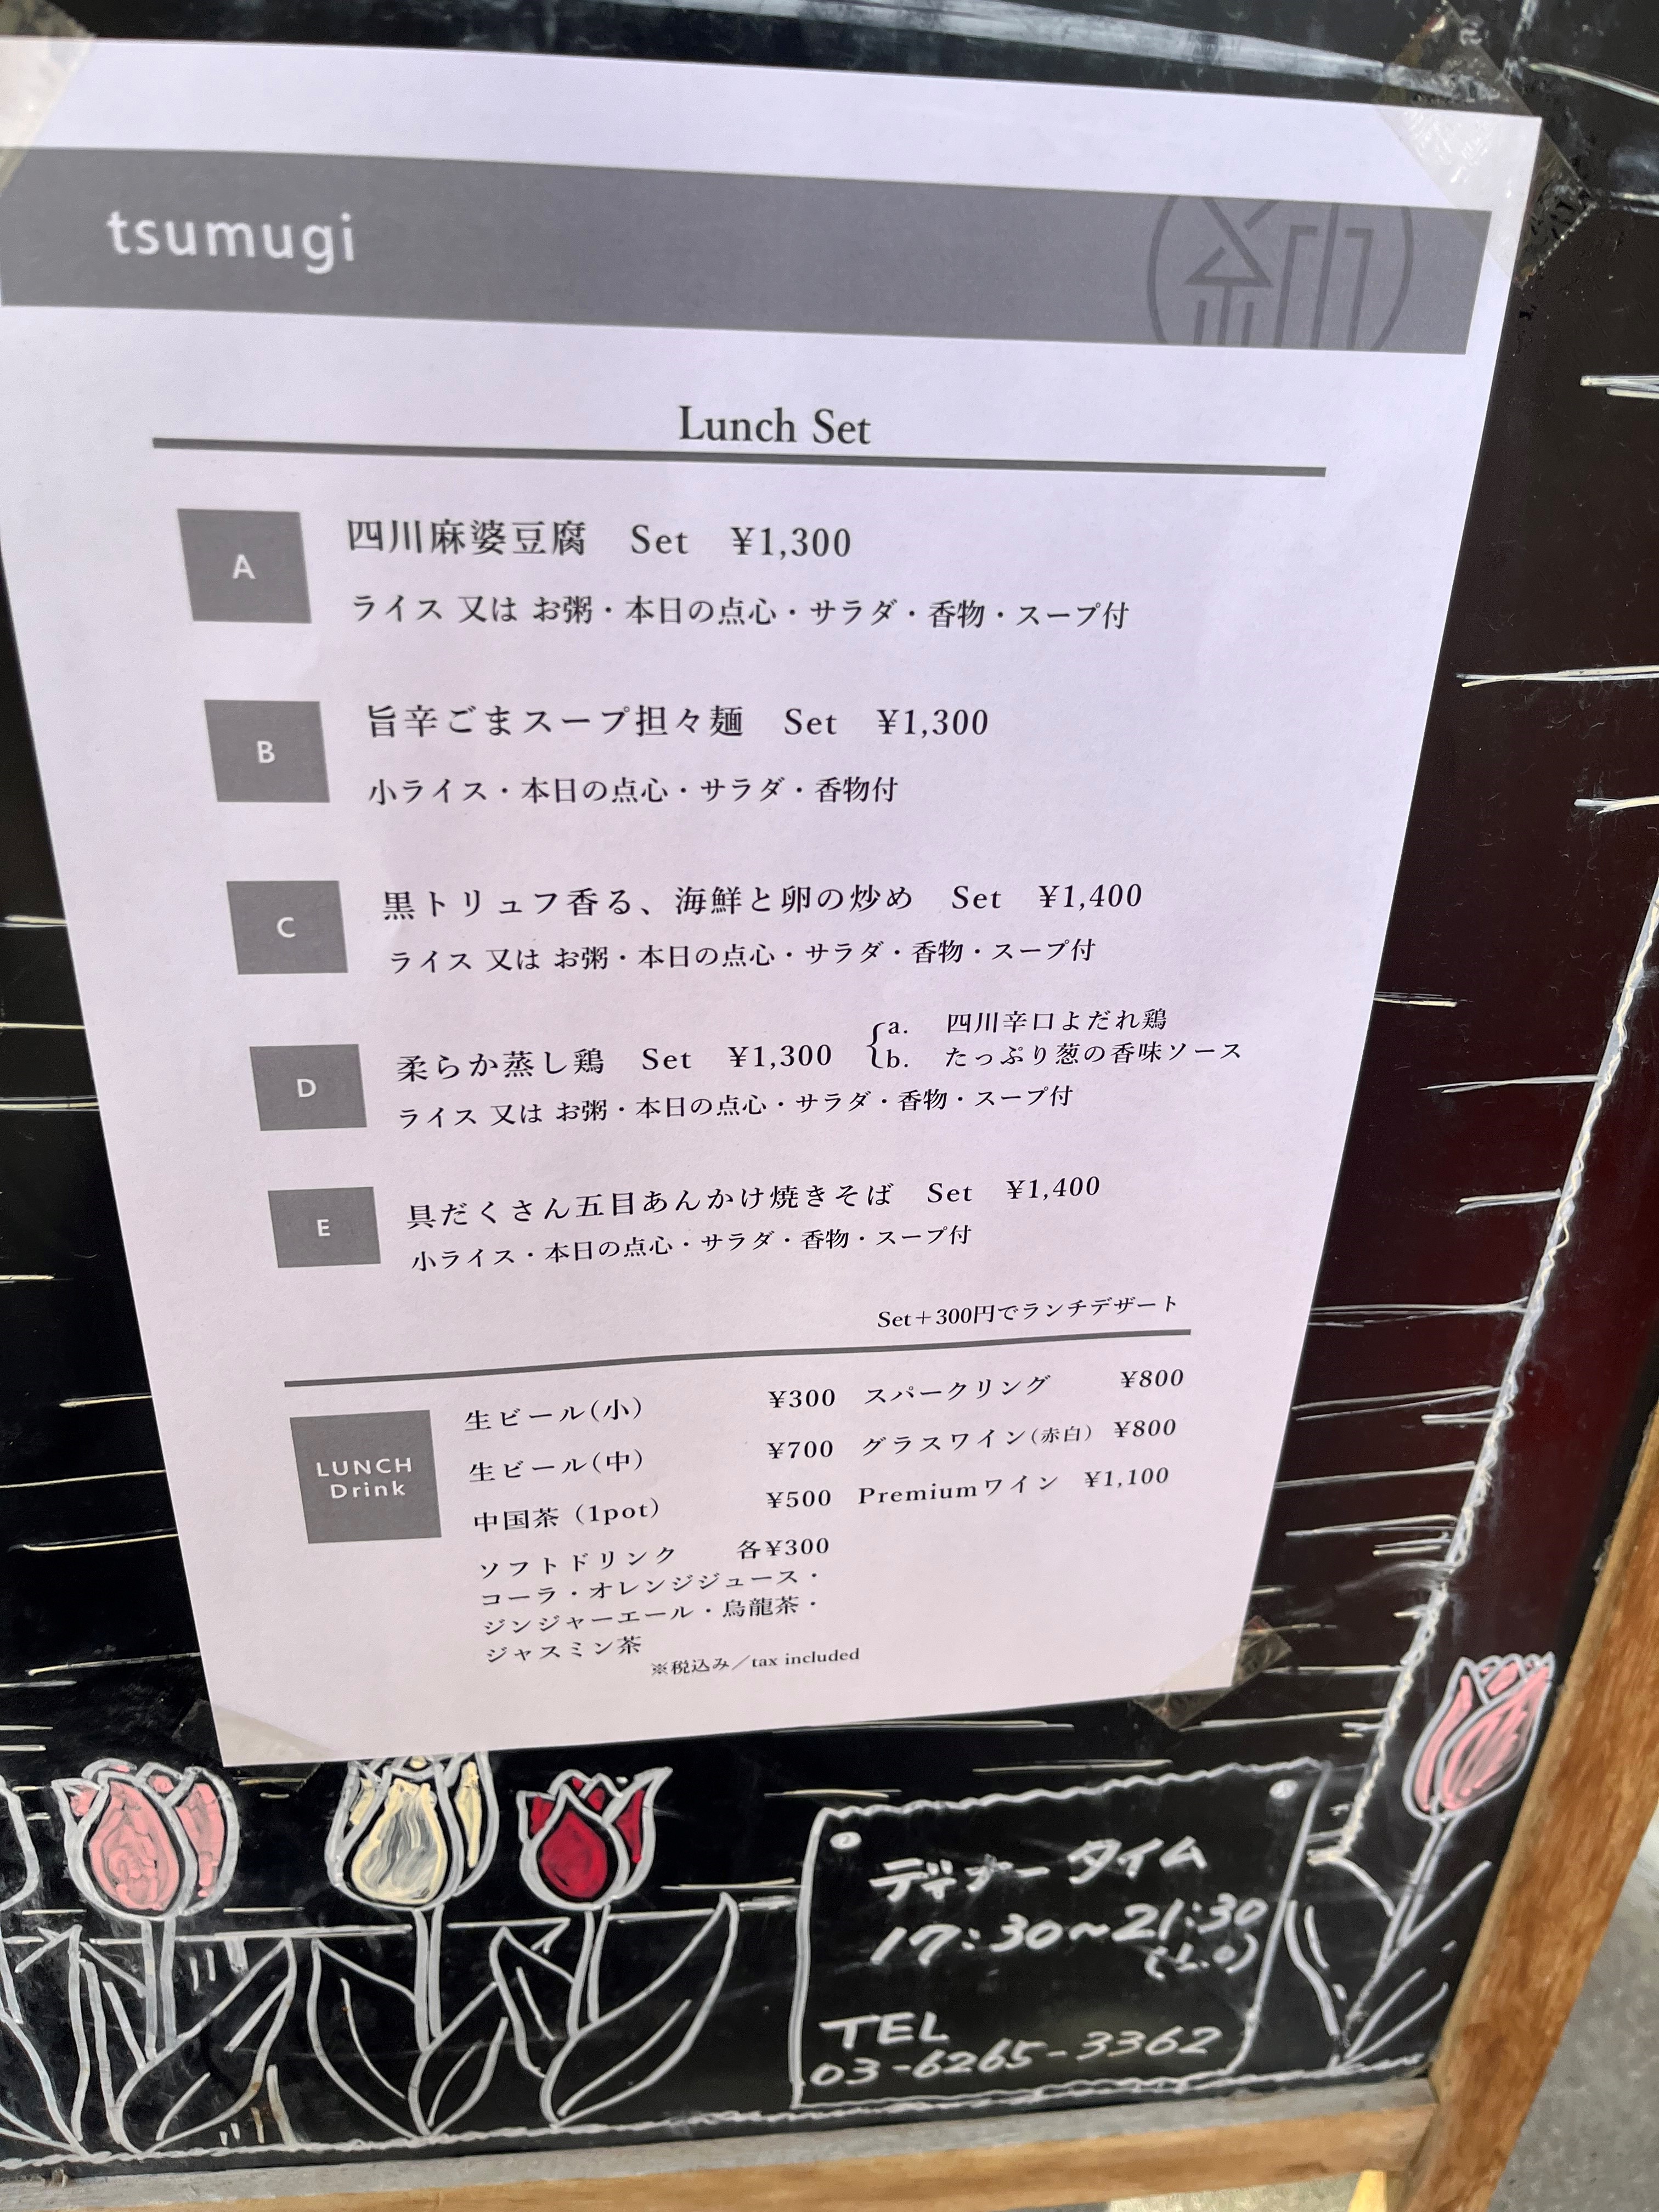 tsumugi
Lunch Set
A
四川麻婆豆腐 Set ¥1,300
ライス 又は お粥・本日の点心・サラダ・香物・スープ付
B
旨辛ごまスープ担々麺 Set ¥1,300
小ライス・本日の点心・サラダ・香物付
C
黒トリュフ香る、海鮮と卵の炒め Set ¥1,400
ライス 又は お粥・本日の点心・サラダ・香物・スープ付
D
柔らか蒸し鶏 Set ¥1,300
a. 四川辛口よだれ鶏
b. たっぷり葱の香味ソース
ライス 又は お粥・本日の点心・サラダ・香物・スープ付
E
具だくさん五目あんかけ焼きそば Set ¥1,400
小ライス・本日の点心・サラダ・香物・スープ付
Set＋300円でランチデザート
LUNCH
Drink
生ビール(小) ¥300
生ビール(中) ¥700
中国茶 (1pot) ¥500
ソフトドリンク 各¥300
コーラ・オレンジジュース・
ジンジャーエール・烏龍茶・
ジャスミン茶
スパークリング ¥800
グラスワイン(赤白) ¥800
Premiumワイン ¥1,100
※税込み／tax included
ディナータイム
17:30~21:30
(L.O)
TEL
03-6265-3362